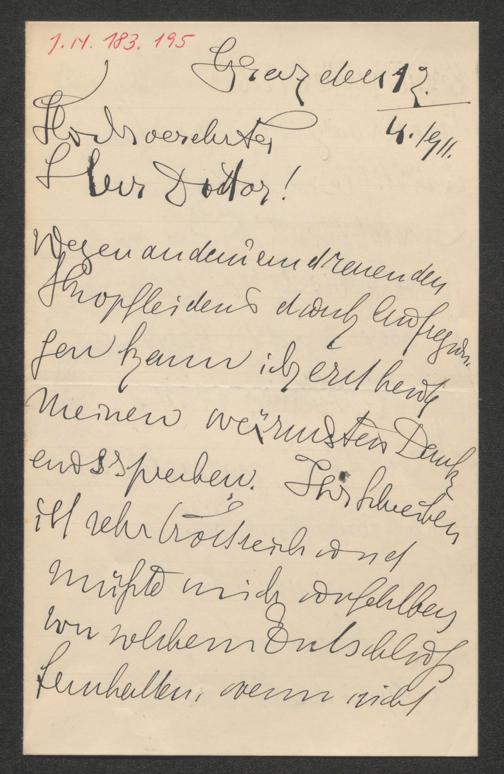 J.N. 183.195
Graz den 12.
4. 1911.
Hochverehrter
Herr Doctor!
Wegen andauernden
Kopfleidens durch Aufregun-
gen kann ich erst heute
meinen wärmsten Dank
aussprechen. Ihr Schreiben
ist sehr trostreich und
müßte mich unfehlbar
von solchem Entschluß
fernhalten, wenn nicht